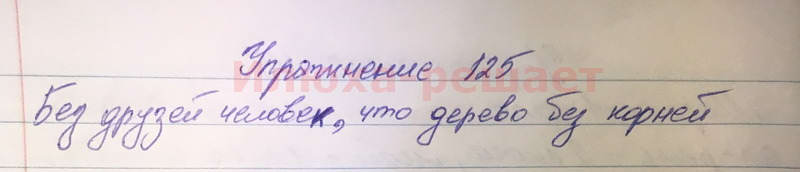 Упражнение 125
Илюха решает
Без друзей человек, что дерево без корней